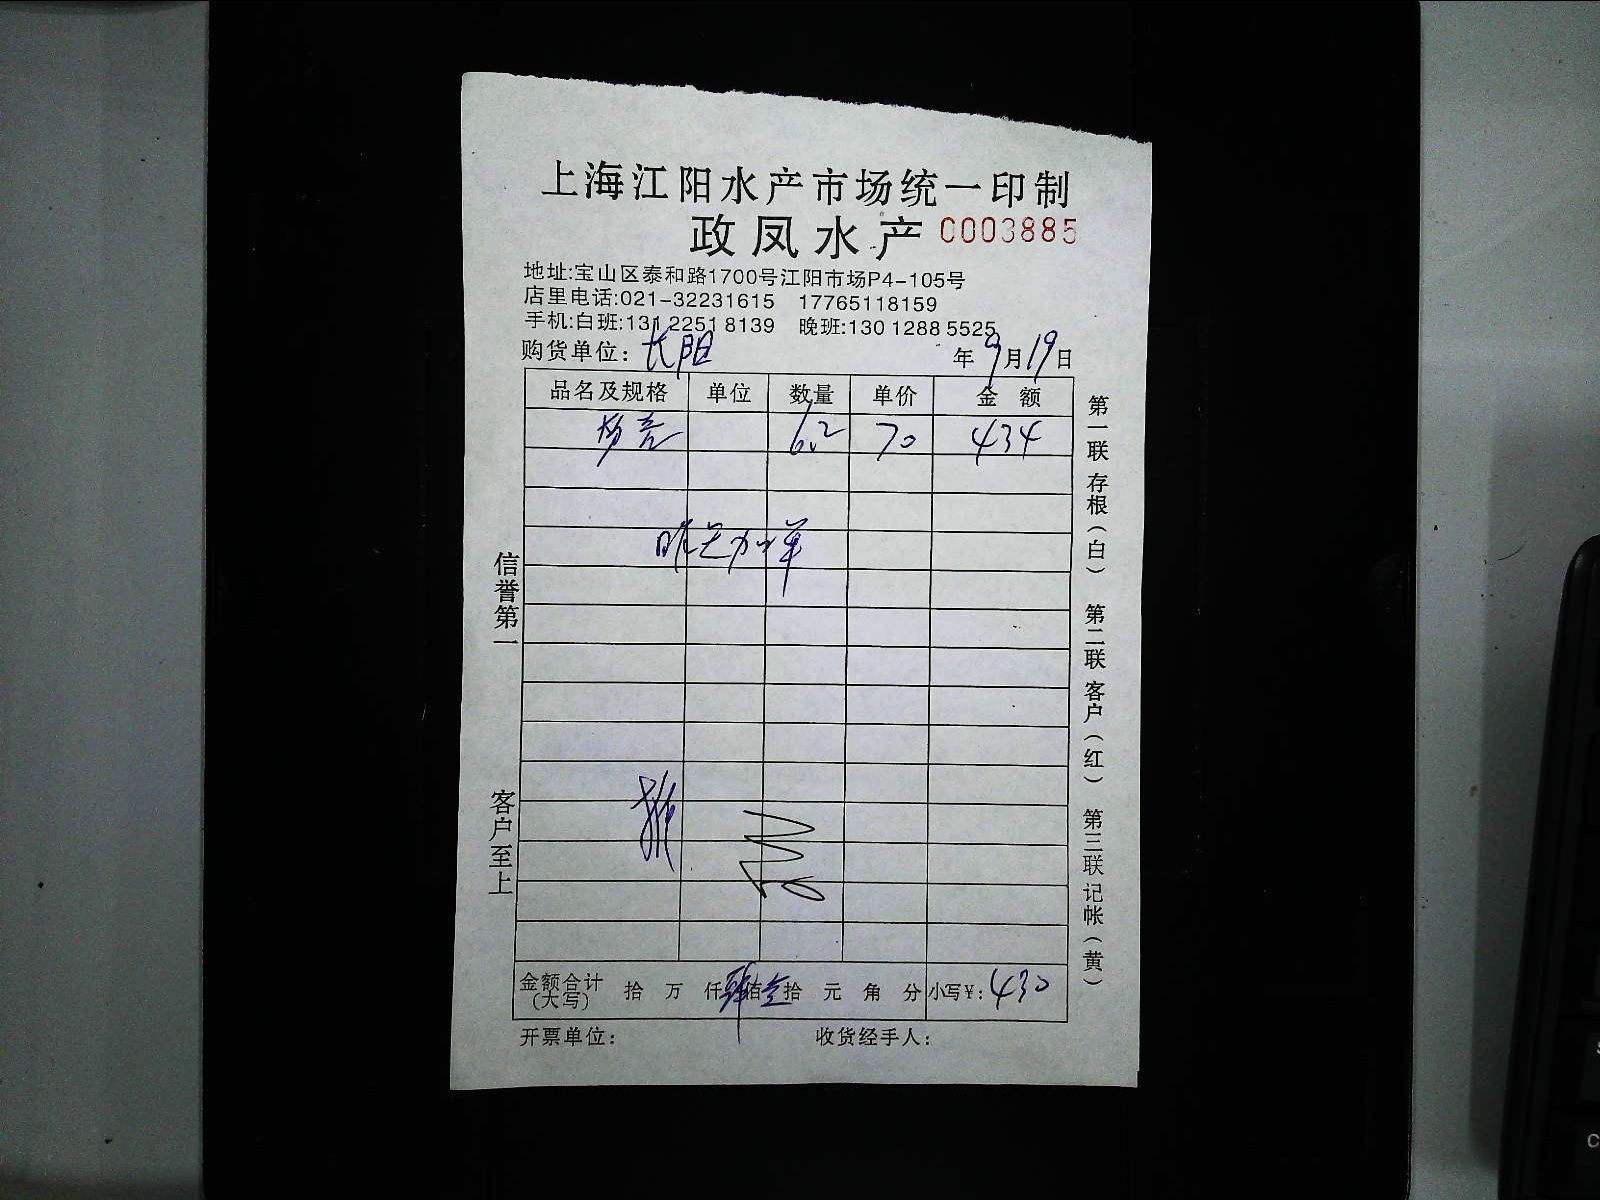 上海江阳水产市场统一印制
政凤水产 0003885
地址:宝山区泰和路1700号江阳市场P4-105号
店里电话:021-32231615 17765118159
手机:白班:131 2251 8139 晚班:130 1288 5525
购货单位: 长阳 年 9 月 19 日
品名及规格 单位 数量 单价 金额
6.2 70 434
昨天加单
金额合计(大写) 拾 万 仟 佰 拾 元 角 分 小写¥: 430
开票单位: 收货经手人:
信誉第一
客户至上
第一联存根(白) 第二联客户(红) 第三联记帐(黄)